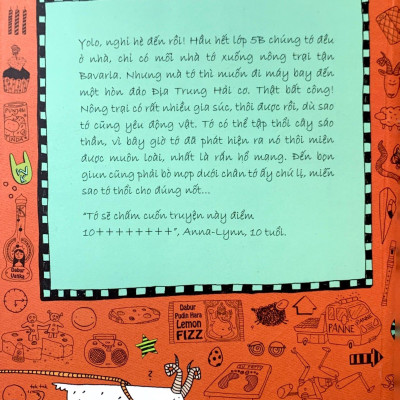 Yolo, nghỉ hè đến rồi! Hầu hết lớp 5B chúng tớ đều
ở nhà, chỉ có mỗi nhà tớ xuống nông trại tận
Bavaria. Nhưng mà tớ thì muốn đi máy bay đến
một hòn đảo Địa Trung Hải cơ. Thật bất công!
Nông trại có rất nhiều gia súc, thôi được rồi, dù sao
tớ cũng yêu động vật. Tớ có thể tập thổi cây sáo
thần, vì bây giờ tớ đã phát hiện ra nó thôi miên
được muôn loài, nhất là rắn hổ mang. Đến bọn
giun cũng phải bò mọp dưới chân tớ ấy chứ lị, miễn
sao tớ thổi cho đúng nốt...
"Tớ sẽ chấm cuốn truyện này điểm
10++++++++", Anna-Lynn, 10 tuổi.
Dabur
Vatika
Dabur
Pudin Hara
Lemon
FIZZ
PANNE